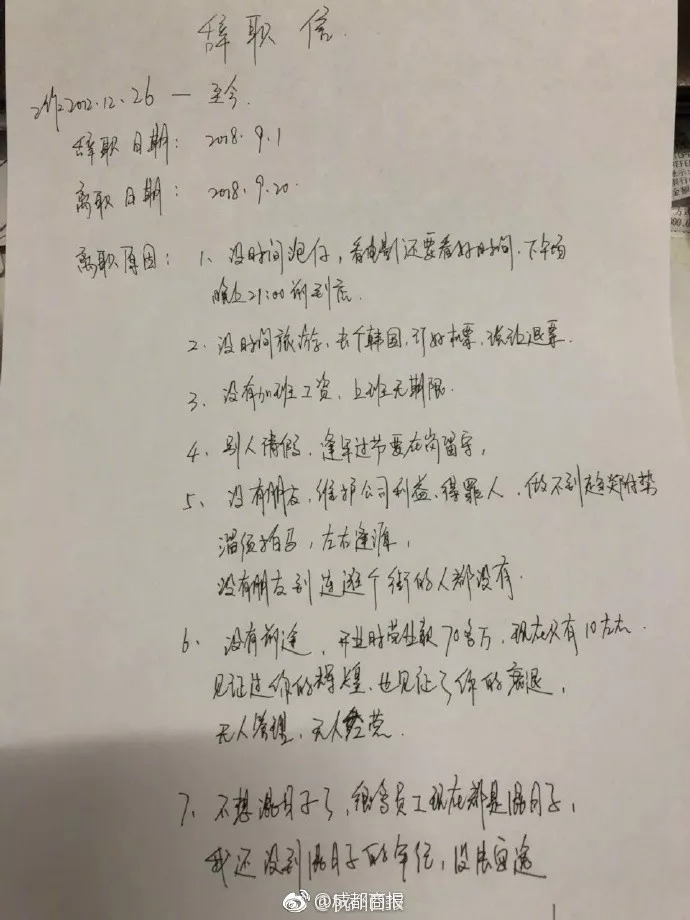 辞职信.
工作2012.12.26 — 至今.
辞职日期: 2018.9.1
离职日期: 2018.9.20.
离职原因: 1、没时间泡仔,看电影还要看好时间.下午场
晚上21:00前到店.
2、没时间旅游、去个韩国,订好机票,被迫退票.
3、没有加班工资,上班无期限.
4、别人请假,逢年过节要在岗留守,
5、没有朋友,维护公司利益、得罪人,做不到趋炎附势
溜须拍马,左右逢源,
没有朋友到连逛个街的人都没有.
6、没有前途,开业时营业额70多万,现在只有10左右.
见证过你的辉煌、也见证了你的衰退,
无人管理,无人经营.
7、不想混日子了,很多员工现在都是混日子,
我还没到混日子的年纪,没法互途
@成都商报